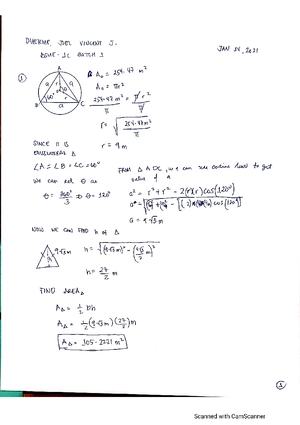 JOEL VINCENT J.
BSME-2C BATCH 1
JAN 26, 2021
1
A
a
a
r
B
a
C
A₀ = 254.47 m²
A₀ = πr²
254.47 m² / π = πr² / π
r = √(254.47 m² / π)
r = 9 m
SINCE IT IS
EQUILATERAL Δ
∠A = ∠B = ∠C = 60°
WE CAN SET θ AS
θ = 360° / 3 ⇒ θ = 120°
FROM Δ AOC, we can use cosine law to get
value of a
a² = r² + r² - 2(r)(r) cos(120°)
a = 9√3 m
NOW WE CAN FIND h OF Δ
9√3 m
h = √((9√3 m)² - (9√3 / 2 m)²)
h = 27 / 2 m
FIND AREA Δ
A Δ = 1/2 bh
A Δ = 1/2 (9√3 m)(27/2) m
A Δ = 105.2221 m²
1
Scanned with CamScanner